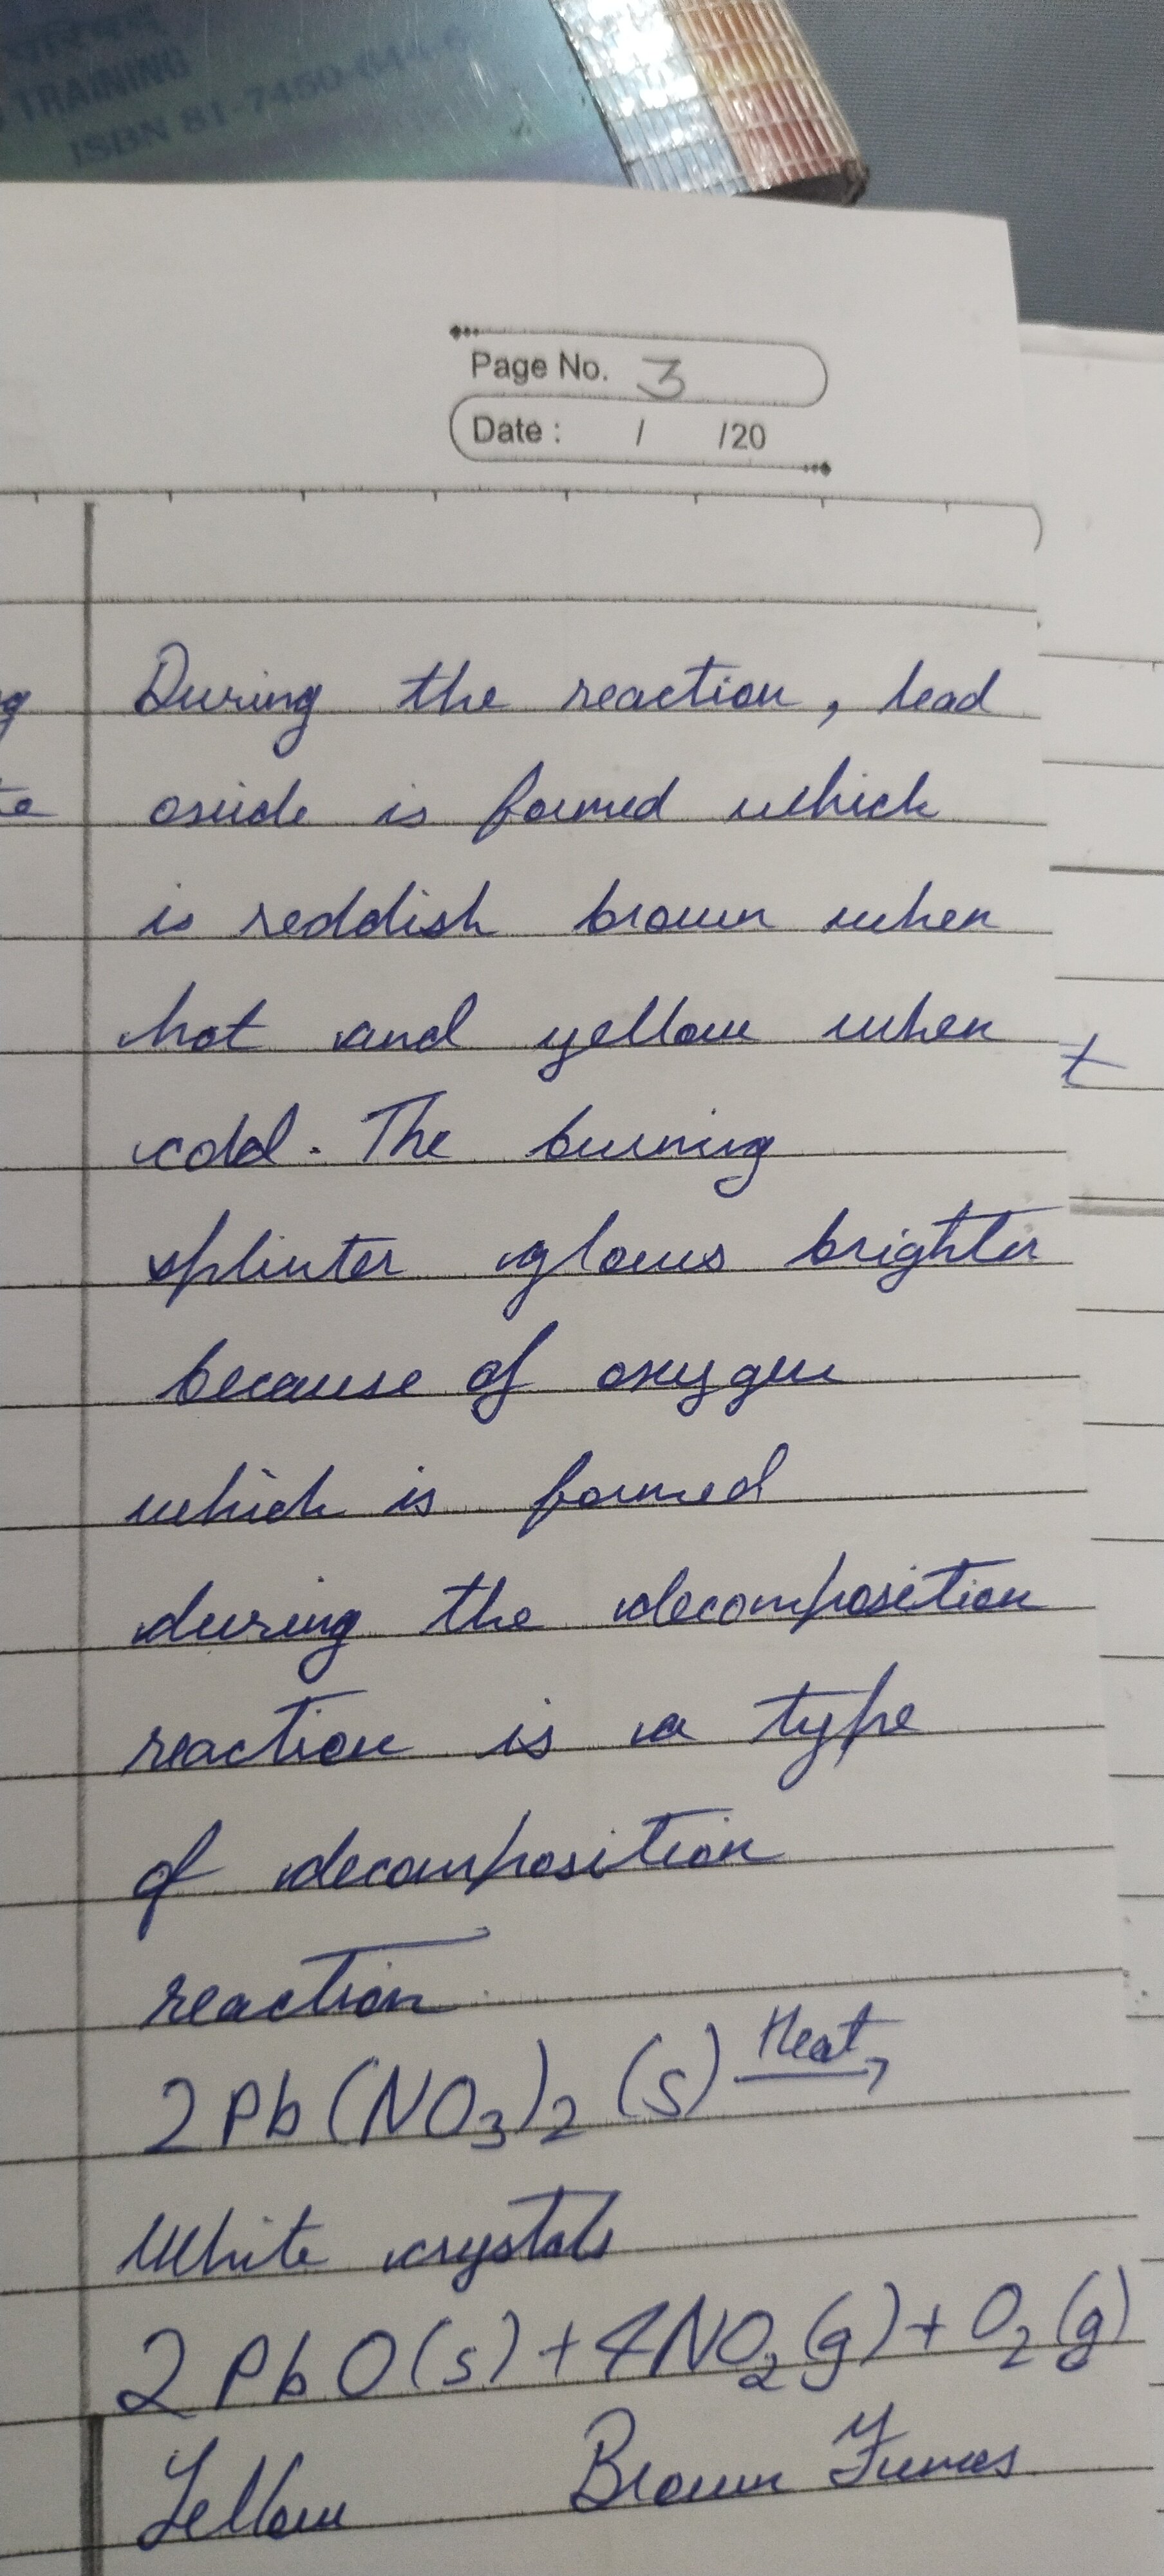 TRAINING
ISBN 81-7450-644-6
Page No. 3
Date : / /20
During the reaction, lead
oxide is formed which
is reddish brown when
hot and yellow when
cold. The burning
splinter glows brighter
because of oxygen
which is formed
during the decomposition
reaction is a type
of decomposition
reaction
2Pb(NO3)2 (s) Heat→
White crystals
2PbO(s) + 4NO2(g) + O2(g)
Yellow Brown Fumes